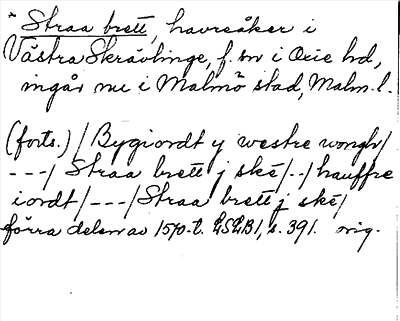 * Straa brett, havreåker i
Västra Skrävlinge, f. sn i Oxie hd,
ingår nu i Malmö stad, Malm. l.
(forts.) / Bygiordt y westre wongh/
---/ Straa brett j ske/--/hauffre
iordt/---/Straa brett j ske/
förra delen av 1570-t. LSLB1, s. 391. orig.